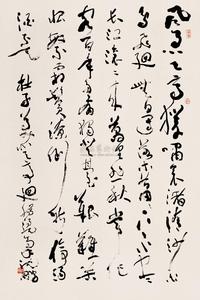 風急天高猿嘯哀渚清沙白
鳥飛迴無邊落木蕭蕭下不盡
長江滾滾來萬里悲秋常作
客百年多病獨登臺艱難苦
恨繁霜鬢潦倒新停濁
酒杯 杜子美